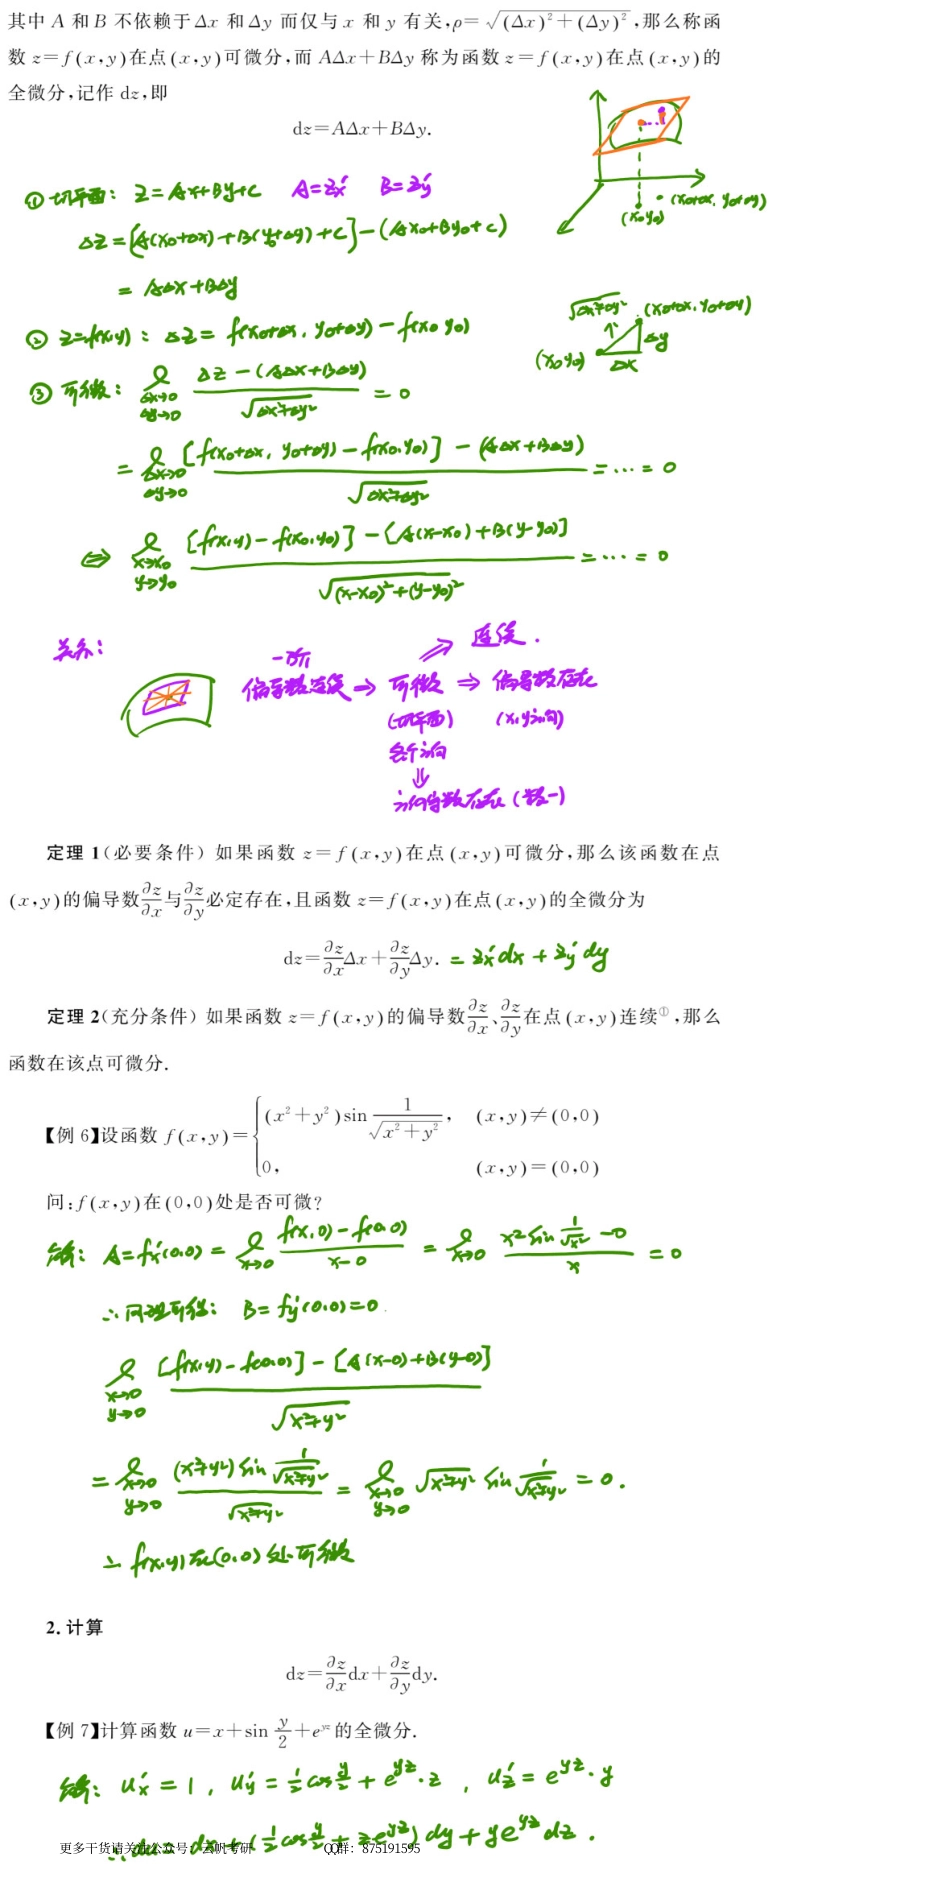 其中 A 和 B 不依赖于Δx 和Δy 而仅与 x 和 y 有关,ρ=√((Δx)²+(Δy)²),那么称函
数 z=f(x,y)在点(x,y)可微分,而 AΔx+BΔy 称为函数 z=f(x,y)在点(x,y)的
全微分,记作 dz,即
dz=AΔx+BΔy.
① 切平面: z=Ax+By+C A=z'x B=z'y
(x₀,y₀) (x₀+Δx, y₀+Δy)
Δz=[A(x₀+Δx)+B(y₀+Δy)+C]-(Ax₀+By₀+C)
= AΔx+BΔy
② z=f(x,y): Δz= f(x₀+Δx, y₀+Δy)-f(x₀,y₀)
√(Δx²+Δy²) (x₀+Δx, y₀+Δy)
(x₀,y₀) Δx Δy
③ 可微: l Δx→0 Δy→0 (Δz-(AΔx+BΔy))/√(Δx²+Δy²) =0
= l Δx→0 Δy→0 ([f(x₀+Δx, y₀+Δy)-f(x₀,y₀)]-(AΔx+BΔy))/√(Δx²+Δy²) =…=0
⇔ l x→x₀ y→y₀ ([f(x,y)-f(x₀,y₀)]-[A(x-x₀)+B(y-y₀)])/√((x-x₀)²+(y-y₀)²) =…=0
关系:
⇒ 连续.
一阶
偏导数连续 ⇒ 可微 ⇒ 偏导数存在
(切平面) (x,y方向)
各个方向
⇓
方向导数存在(数一)
定理 1(必要条件) 如果函数 z=f(x,y)在点(x,y)可微分,那么该函数在点
(x,y)的偏导数∂z/∂x与∂z/∂y必定存在,且函数 z=f(x,y)在点(x,y)的全微分为
dz=∂z/∂xΔx+∂z/∂yΔy. = z'xdx+z'ydy
定理 2(充分条件) 如果函数 z=f(x,y)的偏导数∂z/∂x、∂z/∂y在点(x,y)连续①,那么
函数在该点可微分.
【例 6】设函数 f(x,y)={(x²+y²)sin 1/√(x²+y²), (x,y)≠(0,0)
0, (x,y)=(0,0)
问:f(x,y)在(0,0)处是否可微?
解: A=f'x(0,0)= l x→0 (f(x,0)-f(0,0))/(x-0) = l x→0 (x²sin 1/√x² -0)/x =0
∴同理可得: B=f'y(0,0)=0.
l x→0 y→0 ([f(x,y)-f(0,0)]-[A(x-0)+B(y-0)])/√(x²+y²)
= l x→0 y→0 ((x²+y²)sin 1/√(x²+y²))/√(x²+y²) = l x→0 y→0 √(x²+y²) sin 1/√(x²+y²) =0.
∴ f(x,y)在(0,0)处可微
2.计算
dz=∂z/∂xdx+∂z/∂ydy.
【例 7】计算函数 u=x+sin y/2+e^yz的全微分.
解: u'x=1, u'y=1/2cos y/2+e^yz·z, u'z=e^yz·y
∴du=dx+(1/2cos y/2+ze^yz)dy+ye^yzdz.
更多干货请关注公众号:云帆考研 QQ群:875191595